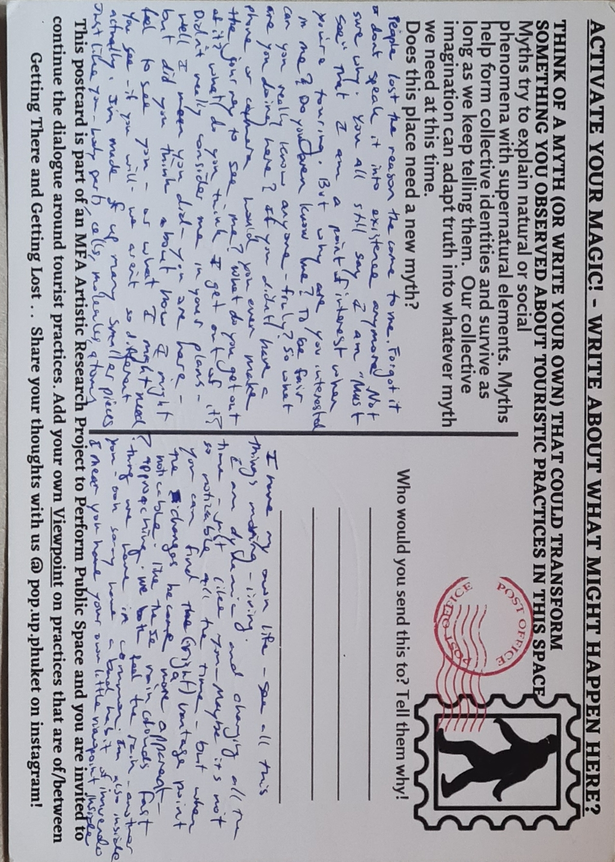 ACTIVATE YOUR MAGIC! - WRITE ABOUT WHAT MIGHT HAPPEN HERE?
THINK OF A MYTH (OR WRITE YOUR OWN) THAT COULD TRANSFORM
SOMETHING YOU OBSERVED ABOUT TOURISTIC PRACTICES IN THIS SPACE
Myths try to explain natural or social
phenomena with supernatural elements. Myths
help form collective identities and survive as
long as we keep telling them. Our collective
imagination can adapt truth into whatever myth
we need at this time.
Does this place need a new myth?
People lost the reason the come to me. Forgot it
or don't speak it into existence anymore. Not
sure why. You all still say I am "Must
see" that I am a point of interest when
you're touring. But why are you interested
in me? Do you even know me? To be fair
can you really know anyone - truly? So what
are you doing here? If you didn't have a
phone or camera would you even make
the journey to see me? What do you get out
of it? What do you think I get out of it?
Didn't really consider me in your plans -
well I mean you did - you are here -
but did you think about how I might
feel to see you - or what I might need?
You see - if you will we aren't so different
actually. I'm made up of many smaller pieces
Just like you - body parts, cells, molecules, atoms
POST OFFICE
POST OFFICE
Who would you send this to? Tell them why!
I have my own life - see all this
things moving - living and changing all the
time - I am dynamic
just like you - maybe it's not
so noticable all the time - but when
you can find the (right) vantage point
the changes become more apparent
noticable like these rain clouds fast
approaching. We both feel the rain - another
thing we have in common. I'm also inside
you - ooh sorry have a bad habit of innuendo
I mean you have your own little viewpoint inside
This postcard is part of an MFA Artistic Research Project to Perform Public Space and you are invited to
continue the dialogue around tourist practices. Add your own Viewpoint on practices that are of/between
Getting There and Getting Lost . . Share your thoughts with us @ pop.up.phuket on instagram!